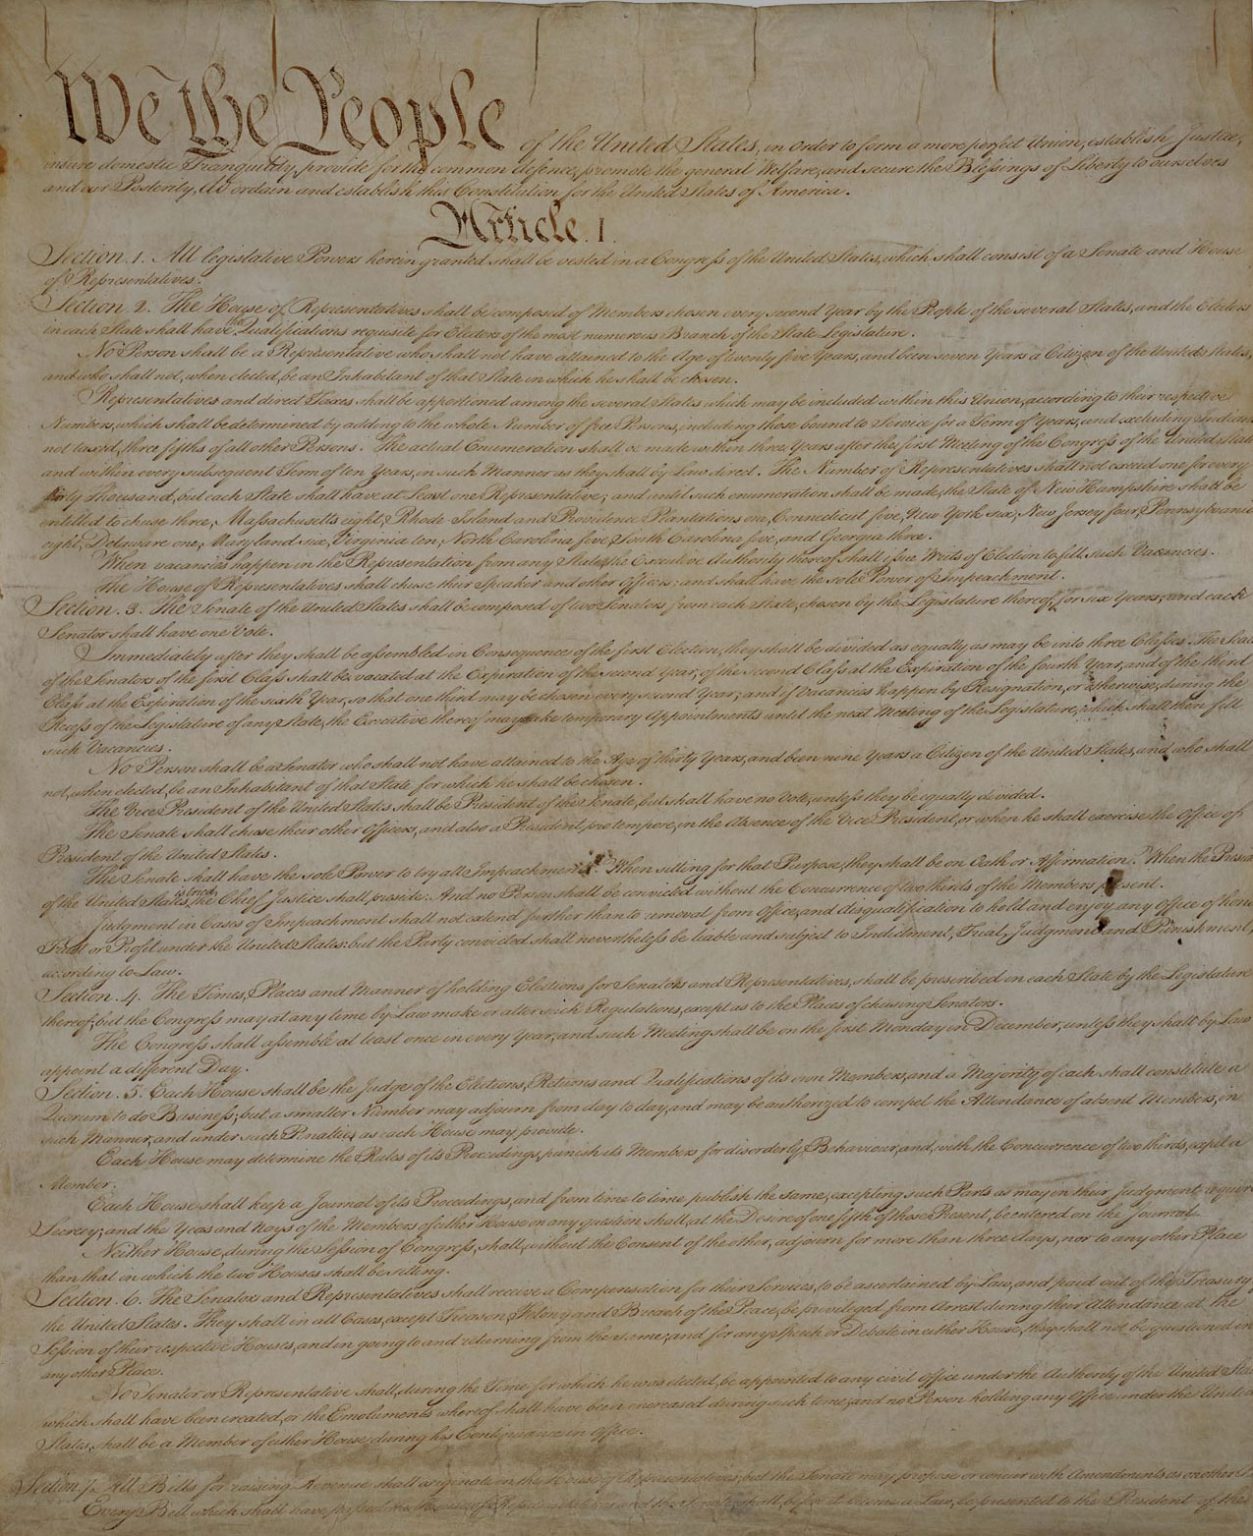 We the People of the United States, in order to form a more perfect Union, establish Justice,
insure domestic Tranquility, provide for the common defence, promote the general Welfare, and secure the Blessings of Liberty to ourselves
and our Posterity, do ordain and establish this Constitution for the United States of America.
Article. I.
Section. 1. All legislative Powers herein granted shall be vested in a Congress of the United States, which shall consist of a Senate and House
of Representatives.
Section. 2. The House of Representatives shall be composed of Members chosen every second Year by the People of the several States, and the Electors
in each State shall have the Qualifications requisite for Electors of the most numerous Branch of the State Legislature.
No Person shall be a Representative who shall not have attained to the Age of twenty five Years, and been seven Years a Citizen of the United States,
and who shall not, when elected, be an Inhabitant of that State in which he shall be chosen.
Representatives and direct Taxes shall be apportioned among the several States which may be included within this Union, according to their respective
Numbers, which shall be determined by adding to the whole Number of free Persons, including those bound to Service for a Term of Years, and excluding Indians
not taxed, three fifths of all other Persons. The actual Enumeration shall be made within three Years after the first Meeting of the Congress of the United States,
and within every subsequent Term of ten Years, in such Manner as they shall by Law direct. The Number of Representatives shall not exceed one for every
thirty Thousand, but each State shall have at Least one Representative; and until such enumeration shall be made, the State of New Hampshire shall be
entitled to chuse three, Massachusetts eight, Rhode Island and Providence Plantations one, Connecticut five, New York six, New Jersey four, Pennsylvania
eight, Delaware one, Maryland six, Virginia ten, North Carolina five, South Carolina five, and Georgia three.
When vacancies happen in the Representation from any State, the Executive Authority thereof shall issue Writs of Election to fill such Vacancies.
The House of Representatives shall chuse their Speaker and other Officers; and shall have the sole Power of Impeachment.
Section. 3. The Senate of the United States shall be composed of two Senators from each State, chosen by the Legislature thereof, for six Years; and each
Senator shall have one Vote.
Immediately after they shall be assembled in Consequence of the first Election, they shall be divided as equally as may be into three Classes. The Seats
of the Senators of the first Class shall be vacated at the Expiration of the second Year, of the second Class at the Expiration of the fourth Year, and of the third
Class at the Expiration of the sixth Year, so that one third may be chosen every second Year; and if Vacancies happen by Resignation, or otherwise, during the
Recess of the Legislature of any State, the Executive thereof may take temporary Appointments until the next Meeting of the Legislature, which shall then fill
such Vacancies.
No Person shall be a Senator who shall not have attained to the Age of thirty Years, and been nine Years a Citizen of the United States, and who shall
not, when elected, be an Inhabitant of that State for which he shall be chosen.
The Vice President of the United States shall be President of the Senate, but shall have no Vote, unless they be equally divided.
The Senate shall chuse their other Officers, and also a President pro tempore, in the Absence of the Vice President, or when he shall exercise the Office of
President of the United States.
The Senate shall have the sole Power to try all Impeachments. When sitting for that Purpose, they shall be on Oath or Affirmation. When the President
of the United States is tried, the Chief Justice shall preside: And no Person shall be convicted without the Concurrence of two thirds of the Members present.
Judgment in Cases of Impeachment shall not extend further than to removal from Office, and disqualification to hold and enjoy any Office of honor,
Trust or Profit under the United States: but the Party convicted shall nevertheless be liable and subject to Indictment, Trial, Judgment and Punishment,
according to Law.
Section. 4. The Times, Places and Manner of holding Elections for Senators and Representatives, shall be prescribed in each State by the Legislature
thereof; but the Congress may at any time by Law make or alter such Regulations, except as to the Places of chusing Senators.
The Congress shall assemble at least once in every Year, and such Meeting shall be on the first Monday in December, unless they shall by Law
appoint a different Day.
Section. 5. Each House shall be the Judge of the Elections, Returns and Qualifications of its own Members, and a Majority of each shall constitute a
Quorum to do Business; but a smaller Number may adjourn from day to day, and may be authorized to compel the Attendance of absent Members, in
such Manner, and under such Penalties as each House may provide.
Each House may determine the Rules of its Proceedings, punish its Members for disorderly Behaviour, and, with the Concurrence of two thirds, expel a
Member.
Each House shall keep a Journal of its Proceedings, and from time to time publish the same, excepting such Parts as may in their Judgment require
Secrecy; and the Yeas and Nays of the Members of either House on any question shall, at the Desire of one fifth of those Present, be entered on the Journal.
Neither House, during the Session of Congress, shall, without the Consent of the other, adjourn for more than three days, nor to any other Place
than that in which the two Houses shall be sitting.
Section. 6. The Senators and Representatives shall receive a Compensation for their Services, to be ascertained by Law, and paid out of the Treasury of
the United States. They shall in all Cases, except Treason, Felony and Breach of the Peace, be privileged from Arrest during their Attendance at the
Session of their respective Houses, and in going to and returning from the same; and for any Speech or Debate in either House, they shall not be questioned in
any other Place.
No Senator or Representative shall, during the Time for which he was elected, be appointed to any civil Office under the Authority of the United States,
which shall have been created, or the Emoluments whereof shall have been increased during such time; and no Person holding any Office under the United
States, shall be a Member of either House during his Continuance in Office.
Section. 7. All Bills for raising Revenue shall originate in the House of Representatives; but the Senate may propose or concur with Amendments as on other
Every Bill which shall have passed the House of Representatives and the Senate, shall, before it become a Law, be presented to the President of the